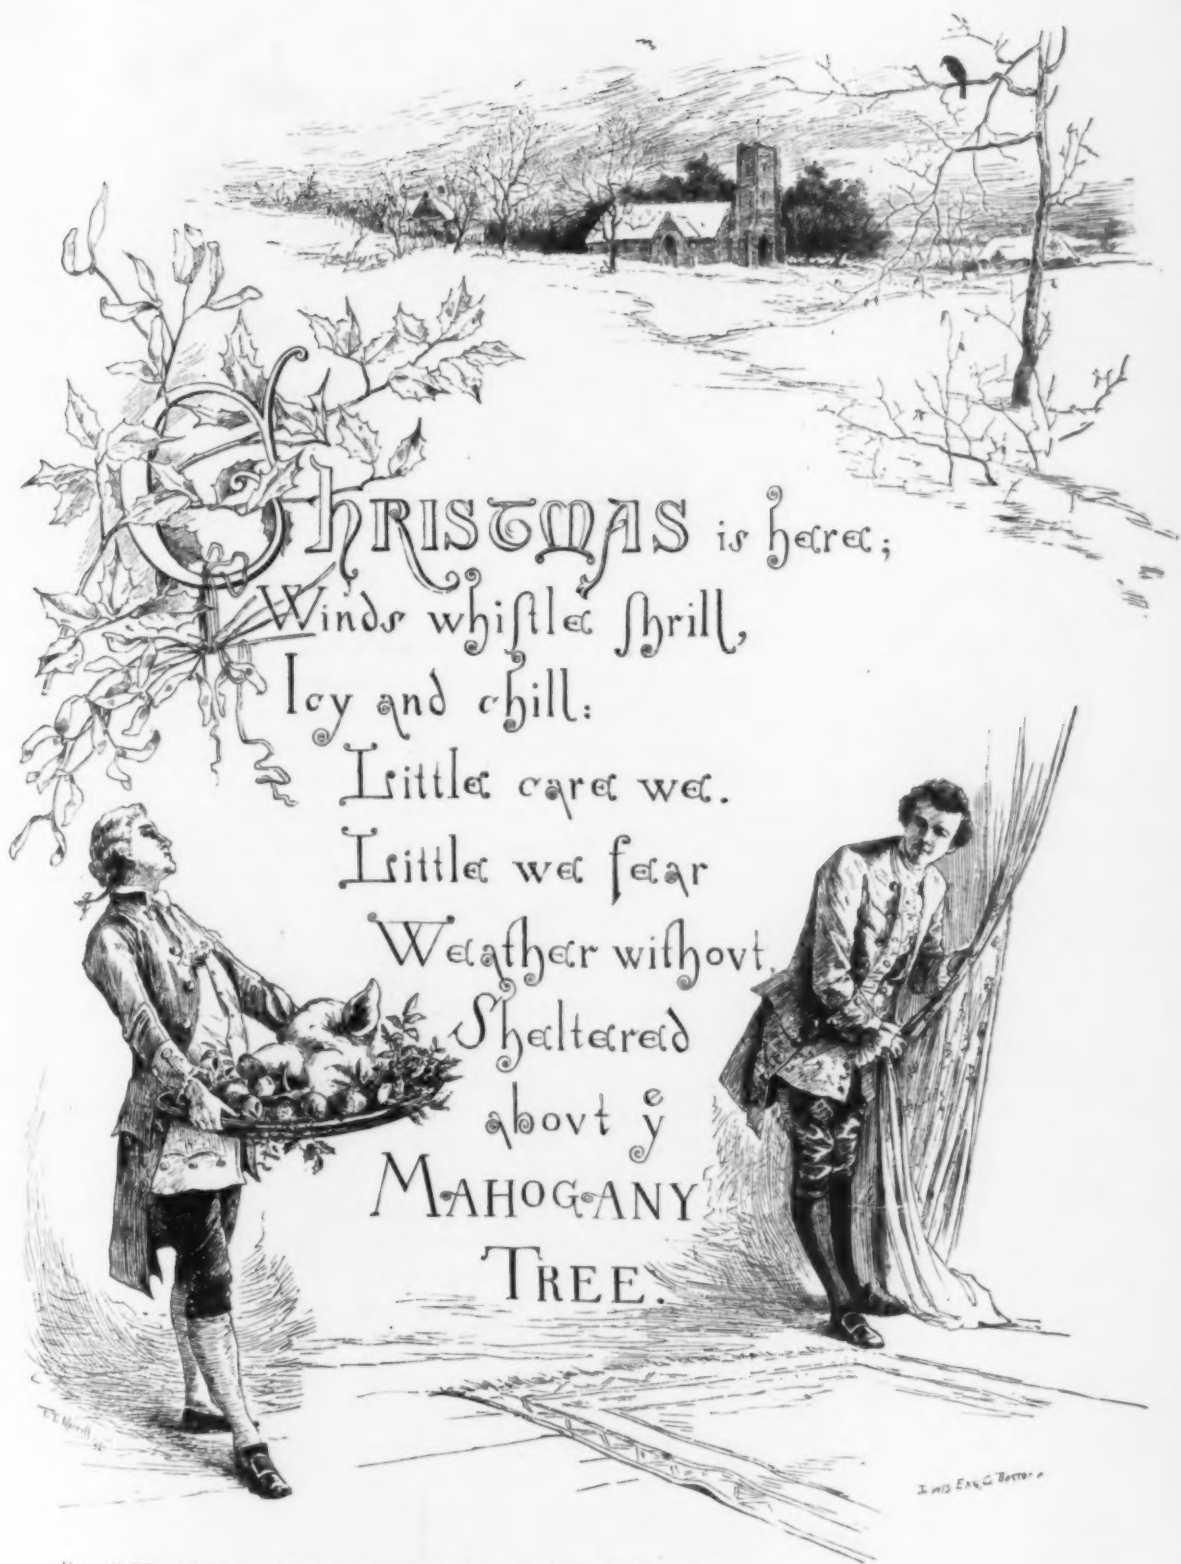 CHRISTMAS is here;
Winds whiſtle ſhrill,
Icy and chill:
Little care we.
Little we fear
Weather withovt,
Sheltered
abovt yᵉ
MAHOGANY
TREE.
Eng Co Boston